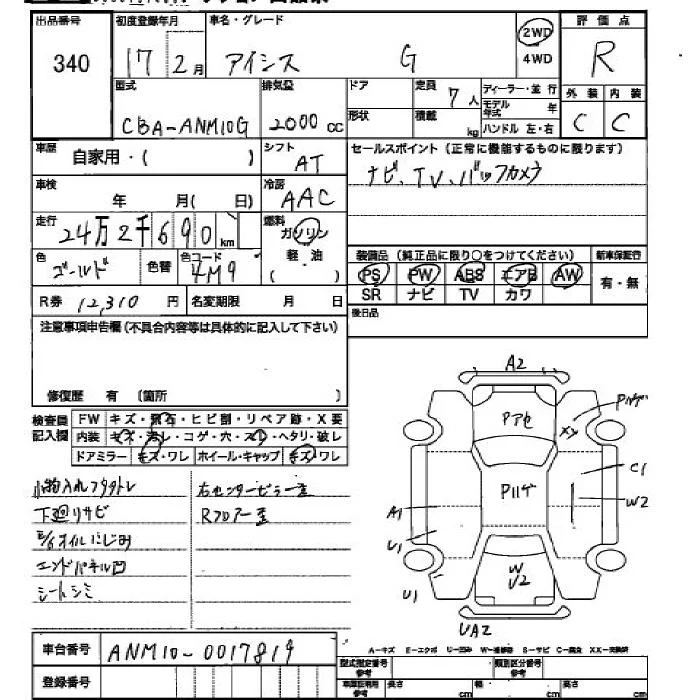 出品番号 初度登録年月 車名・グレード 評価点
340 17 2月 アイシス G 2WD 4WD R
型式 排気量 ドア 定員 7人 ディーラー・並行 外装 内装
CBA-ANM10G 2000cc 形状 積載 kg モデル年式 年 ハンドル 左・右 C C
車歴 自家用・( ) シフト AT セールスポイント(正常に機能するものに限ります)
車検 年 月( 日) 冷房 AAC ナビ、TV、バックカメラ
走行 24万2千690km 燃料 ガソリン
軽油
( )
色 ゴールド 色替 色コード 4M9
装備品(純正品に限り○をつけてください) 新車保証行
PS PW ABS エアB AW 有・無
SR ナビ TV カワ
R券 12,310円 名変期限 月 日
後日品
注意事項申告欄(不具合内容等は具体的に記入して下さい)
修復歴 有 〔箇所 〕
検査員記入欄 FW キズ・飛石・ヒビ割・リペア跡・X要
内装 キズ・汚レ・コゲ・穴・スレ・ヘタリ・破レ
ドアミラー キズ・ワレ ホイール・キャップ キズ・ワレ
小物入れフタタトレ 右センターピラー歪
下廻りサビ Rフロアー歪
E/Gオイルにじみ
エンドパネル凹
シートシミ
A2
Pアセ
Pハゲ
XP
Pハゲ
C1
W2
A1
U1
U1
W
U2
UA2
車台番号 ANM10-0017819
登録番号
A-キズ E-エクボ U-凹み W-補修跡 S-サビ C-腐食 XX-交換済
型式指定番号 参考 類別区分番号 参考
車庫証明用 参考 長さ cm 幅 cm 高さ cm